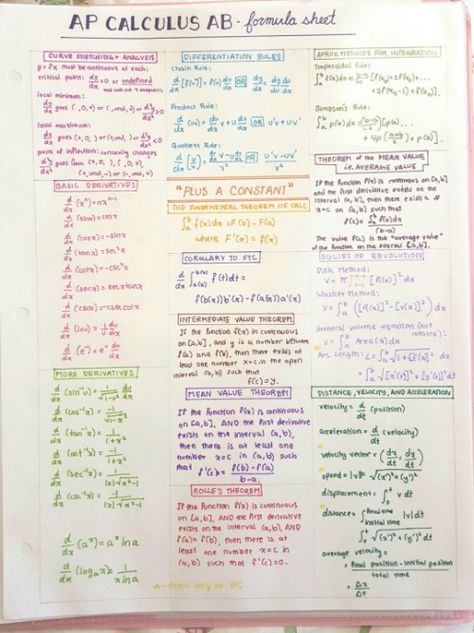 AP CALCULUS AB - formula sheet
CURVE SKETCHING + ANALYSIS
y = f(x) must be continuous at each:
critical point: dy/dx = 0 or undefined
local minimum:
dy/dx goes (-,0,+) or (-,und,+) or d²y/dx² > 0
local maximum:
dy/dx goes (+,0,-) or (+,und,-) or d²y/dx² < 0
point of inflection: concavity changes
d²y/dx² goes from (+,0,-), (-,0,+)
(+,und,-) or (-,und,+)
BASIC DERIVATIVES
d/dx (xⁿ) = nxⁿ⁻¹
d/dx (sinx) = cosx
d/dx (cosx) = -sinx
d/dx (tanx) = sec²x
d/dx (cotx) = -csc²x
d/dx (secx) = secxtanx
d/dx (cscx) = -cscxcotx
d/dx (lnu) = 1/u du/dx
d/dx (eᵘ) = eᵘ du/dx
MORE DERIVATIVES
d/dx (cos⁻¹x) = -1/√1-x²
d/dx (tan⁻¹x) = 1/1+x²
d/dx (cot⁻¹x) = -1/1+x²
d/dx (sec⁻¹x) = 1/|x|√x²-1
d/dx (csc⁻¹x) = -1/|x|√x²-1
d/dx (aˣ) = aˣ ln a
d/dx (logₐx) = 1/x ln a
DIFFERENTIATION RULES
Chain Rule:
d/dx [f(u)] = f'(u) du/dx OR dy/dx = dy/du du/dx
Product Rule:
d/dx (uv) = du/dx v + u dv/dx OR u'v + uv'
Quotient Rule:
OR u'v - uv' / v²
"PLUS A CONSTANT"
THE FUNDAMENTAL THEOREM OF CALC
∫ₐᵇ f(x)dx = F(b) - F(a)
where F'(x) = f(x)
COROLLARY TO FTC
f(b(x))b'(x) - f(a(x))a'(x)
INTERMEDIATE VALUE THEOREM
If the function f(x) is continuous
on [a,b], and y is a number between
f(a) and f(b), then there exists at
least one number x=c in the open
interval (a,b) such that
f(c) = y.
MEAN VALUE THEOREM
If the function f(x) is continuous
on [a,b], AND the first derivative
exists on the interval (a,b),
then there is at least one
number x=c in (a,b) such
that f'(c) = f(b) - f(a) / b-a.
ROLLE'S THEOREM
If the function f(x) is continuous
on [a,b], AND the first derivative
exists on the interval (a,b), AND
f(a) = f(b), then there is at
least one number x=c in
(a,b) such that f'(c) = 0.
- topic only on BC
APROX. METHODS FOR INTEGRATION
Trapezoidal Rule:
Simpson's Rule:
THEOREM of the MEAN VALUE
i.e. AVERAGE VALUE
If the function f(x) is continuous on [a,b]
and the first derivative exists on the
interval (a,b), then there exists a #
x=c on (a,b) such that
f(c) = ∫ₐᵇ f(x)dx / (b-a)
The value f(c) is the "average value"
of the function on the interval [a,b].
SOLIDS OF REVOLUTION
Disk Method:
Washer Method:
V = π∫ₐᵇ ([R(x)]² - [r(x)]²) dx
General volume equation (not
rotated):
V = ∫ₐᵇ Area(x) dx
Arc Length:
DISTANCE, VELOCITY, AND ACCELERATION
velocity = d/dt (position)
acceleration = d/dt (velocity)
velocity vector = (dx/dt, dy/dt)
speed = |v| = √(x')² + (y')²
displacement =
distance = ∫ final time initial time |v| dt
∫ √(x')² + (y')² dt
average velocity =
= final position - initial position / total time
= Δx/Δt